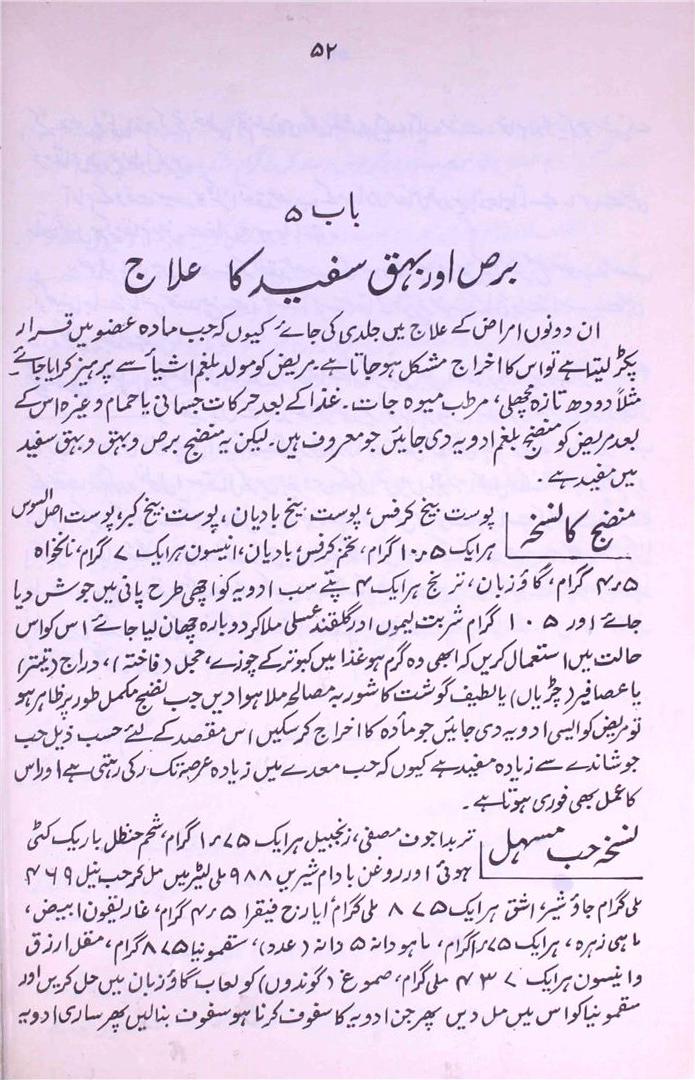 ۵۲
باب ۵
برص اور بہق سفید کا علاج
ان دونوں امراض کے علاج میں جلدی کی جائے کیوں کہ جب مادہ عضو میں قرار
پکڑ لیتا ہے تو اس کا اخراج مشکل ہو جاتا ہے۔ مریض کو مولد بلغم اشیأ سے پرہیز کرایا جائے۔
مثلاً دودھ تازہ مچھلی، مرطب میوہ جات۔ غذا کے بعد حرکات جسمانی یا حمام وغیرہ اس کے
بعد مریض کو منضج بلغم ادویہ دی جائیں جو معروف ہیں۔ لیکن یہ منضج برص و بہق و بہق سفید
میں مفید ہے۔
منضج کا نسخہ پوست بیخ کرفس، پوست بیخ بادیان، پوست بیخ کبر، پوست اصل السوس
ہر ایک ۱۰٫۵ گرام، تخم کرفس، بادیان، انیسون ہر ایک ۷ گرام، نانخواہ
۴٫۵ گرام، گاؤزبان، ترنج ہر ایک ۴ پتے سب ادویہ کو اچھی طرح پانی میں جوش دیا
جائے اور ۱۰۵ گرام شربت لیموں اور گلقند عسلی ملا کر دوبارہ چھان لیا جائے اس کو اس
حالت میں استعمال کریں کہ ابھی وہ گرم ہو غذا میں کبوتر کے چوزے، حجل (فاختہ)، دراج (تیتر)
یا عصافیر (چڑیاں) یا لطیف گوشت کا شوربہ مصالحہ ملا ہوا دیں جب نضج مکمل طور پر ظاہر ہو
تو مریض کو ایسی ادویہ دی جائیں جو مادہ کا اخراج کر سکیں اس مقصد کے لئے حسب ذیل حب
جوشاندے سے زیادہ مفید ہے کیوں کہ حب معدے میں زیادہ عرصہ تک رکی رہتی ہے اور اس
کا عمل بھی فوری ہوتا ہے۔
نسخہ حب مسہل تربد اجوف مصفی، زنجبیل ہر ایک ۱٫۷۵ گرام، شحم حنظل باریک کٹی
ہوئی اور روغن بادام شیریں ۹۸۸ ملی لیٹر میں مل کر حب نیل ۴۶۹
ملی گرام جاؤشیر، اشق ہر ایک ۸۷۵ ملی گرام ایارج فیقرا ۴٫۵ گرام، غاریقون ابیض،
ماہی زہرہ، ہر ایک ۱٫۷۵ گرام، ماہودانہ ۵ دانہ (عدد)، سقمونیا ۸۷۵ گرام، مقل ارزق
و انیسون ہر ایک ۴۳۷ ملی گرام، صموغ (گوندوں) کو لعاب گاؤزبان میں حل کریں اور
سقمونیا کو اس میں مل دیں پھر جن ادویہ کا سفوف کرنا ہو سفوف بنالیں پھر ساری ادویہ